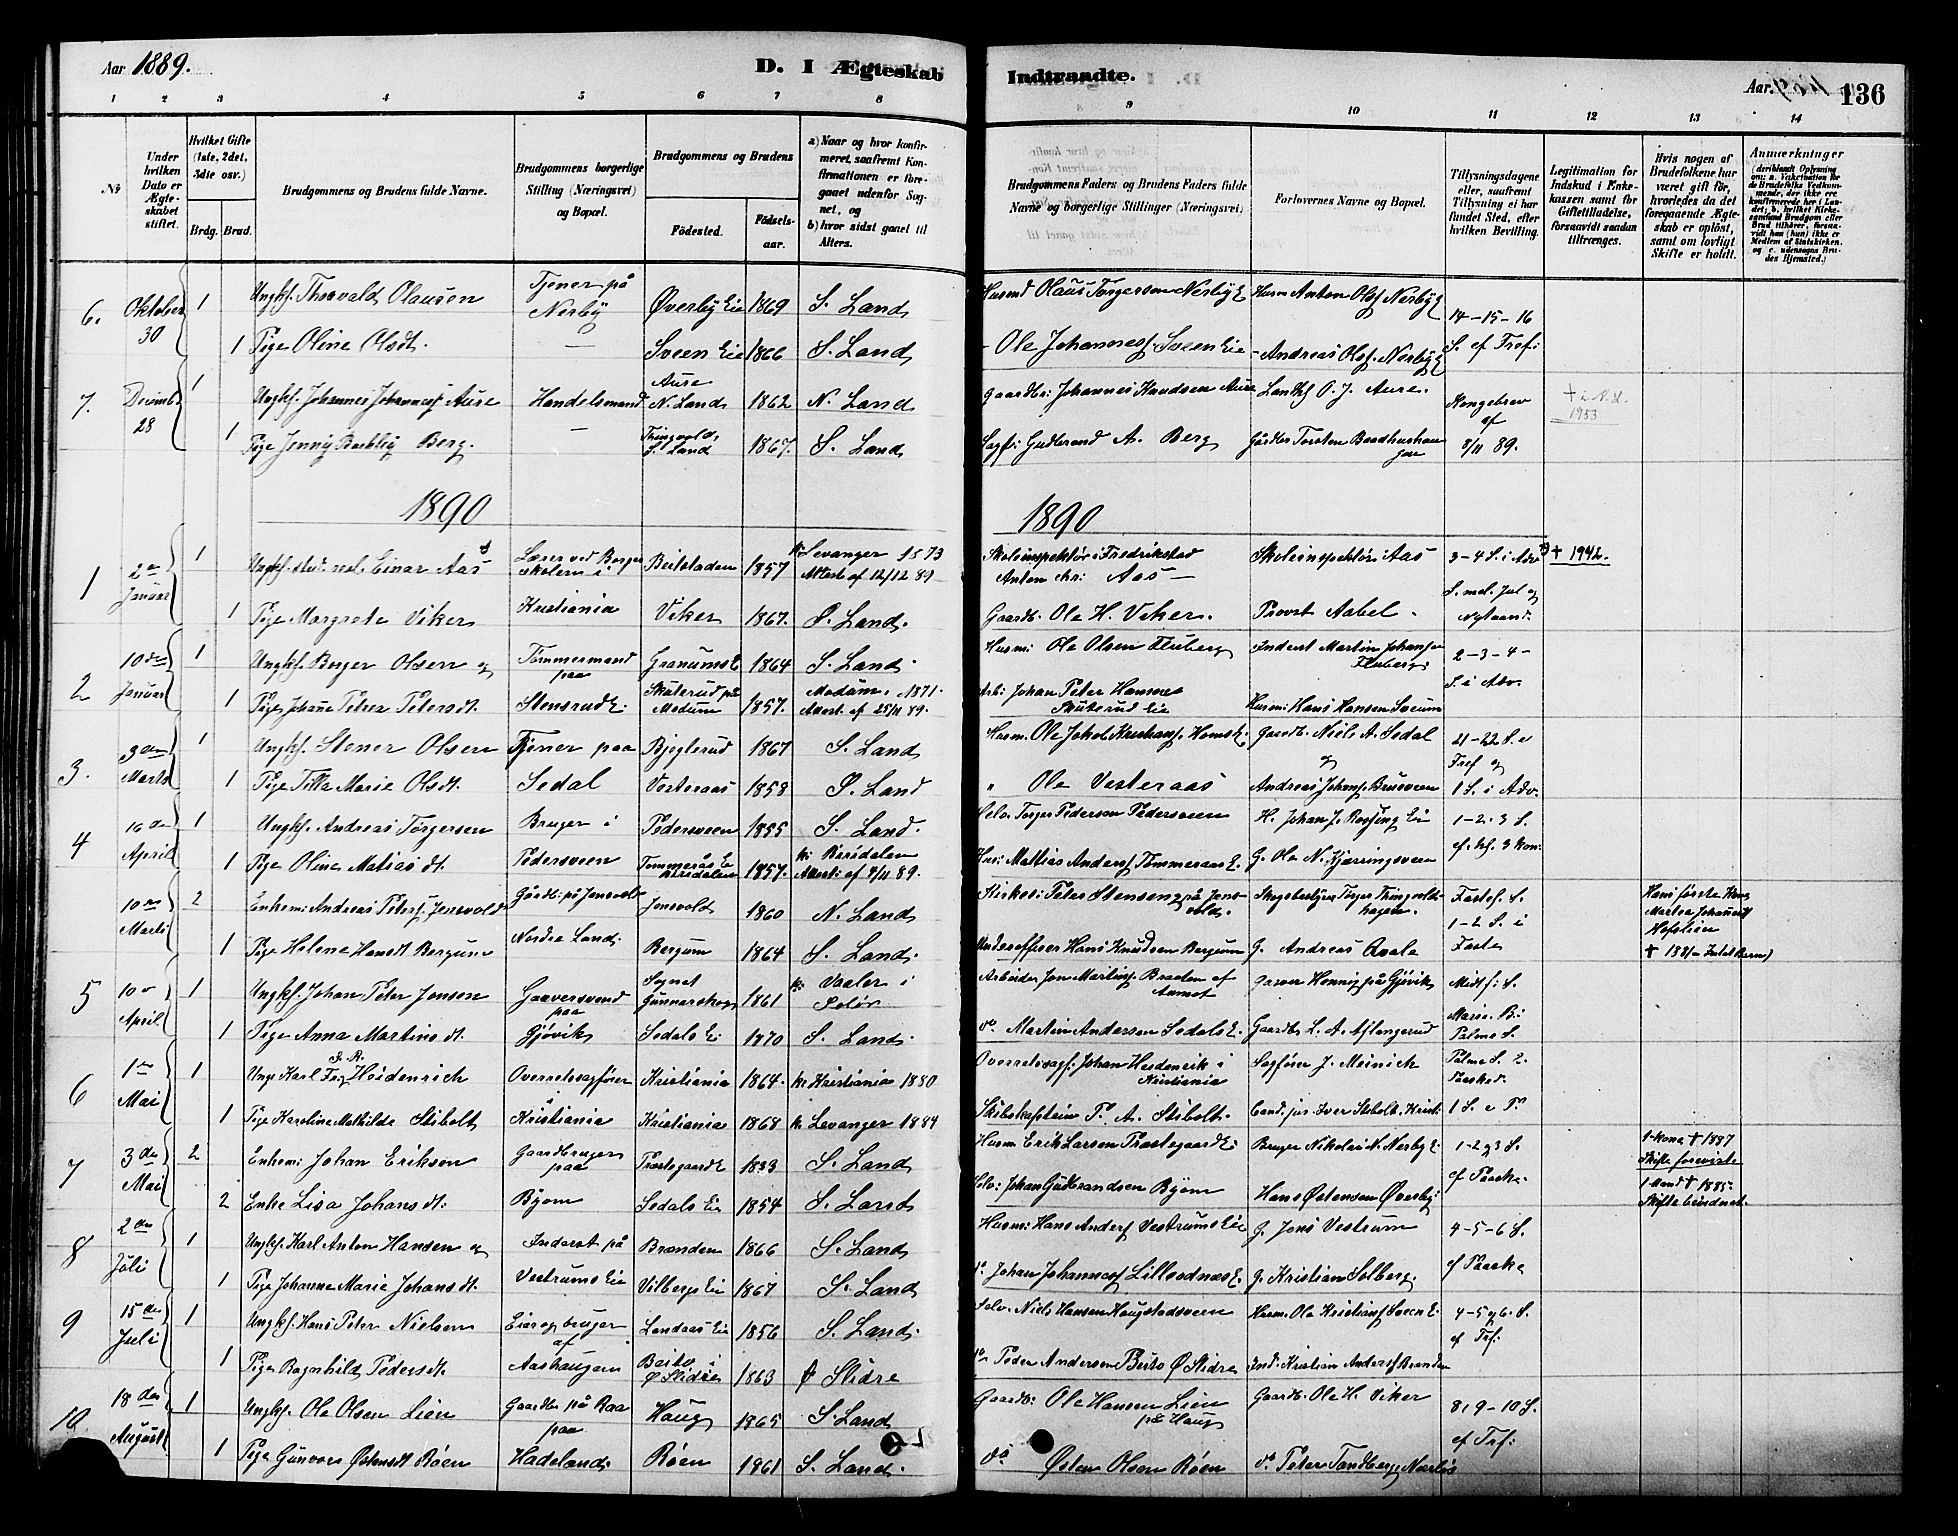 Aar 1889.
D. I Ægteskab
Indtraadte.
Aar.
136
1 2 3 4 5 6 7 8 9 10 11 12 13 14
No
Under hvilken Dato er Ægteskabet stiftet.
Hvilket Gifte (1ste, 2det, 3die osv.)
Brdg. Brud.
Brudgommens og Brudens fulde Navne.
Brudgommens borgerlige Stilling (Næringsvei) og Bopæl.
Brudgommens og Brudens
Fødested. Fødselsaar.
a) Naar og hvor konfirmeret, saafremt Konfirmationen er foregaaet udenfor Sognet, og
b) hvor sidst gaaet til Alters.
Brudgommens Faders og Brudens Faders fulde Navne og borgerlige Stillinger (Næringsvei)
Forlovernes Navne og Bopæl.
Tillysningsdagene eller, saafremt Tillysning ei har fundet Sted, efter hvilken Bevilling.
Legitimation for Indskud i Enkekassen samt for Giftetilladelse, forsaavidt saadan tiltrænges.
Hvis nogen af Brudefolkene har været gift før, hvorledes da det foregaaende Ægteskab er opløst, samt om lovligt Skifte er holdt.
Anmærkninger
6. Oktober 30 1 Ungkf. Thorvald Olausen Tjener på Nerby Øverby Eie 1869 S. Land Husmd Olaus Torgersen Nerby E Husm Anton Olsf. Nerby E 14-15-16
1 Pige Oline Olsdt. — Sveen Eie 1866 S. Land - Ole Johannesf. Sveen Eie - Andreas Olsf. Nerby E S. ef Tref:
7. Decemb. 28 1 Ungkf. Johannes Johannesf Aure Handelsmand Aure N. Land 1862 N. Land Gaardbr: Johannes Knudsen Aure Landh O. J. Aure. Kongebrev af † i N. L. 1953
1 Pige Jenny Berg. — Tringvold, S. Land 1867. S. Land Sagf: Gudbrand A. Berg Gårdbr Torsten Baadhushaugen 8/11 89.
1890
1890
1 2den Januar 1 Ungkf. stud. Einar Aas Lærer ved Borger skolen i Beitstaden 1857 k: Levanger 1873 Attest af 12/12 89 Skoleinspektør i Fredrikstad Anton Chr: Aas — Skoleinspektør Aas 3-4 S. i Adv † 1942.
1 Pige Margrete Viker Kristiania Viker 1867. S. Land. Gaardb. Ole H. Viker. Provst Aabel. S. mel. Jul og Nytaard.
2 10de Januar 1 Ungkf. Borger Olsen og Tømmermand paa Granums E 1864 S. Land. Husm: Ole Olsen Fluberg Inderst Martin Johansen Fluberg: 2-3-4-
1 Pige Johanne Petrea Petersdt. Stensrud E. Skuterud på Modum 1857. Modum. 1871. Attest. af 25/11 89. Arb: Johan Peter Hannes Skuterud Eie Husm: Hans Hansen Sveum S. i Adv.
3. 3die Marts 1 Ungkf. Stener Olsen Tjener paa Bjeglerud 1867 S. Land Husm. Ole Jakob Kristians. Homs E. Gaardb. Niels A. Sedal og 21-22 S. e Tref og
1 Pige Tilla Marie Olsdt. Sedal Vesteraas 1858 S. Land " Ole Vesteraas Andreas Johans. Brusveen 1 S. i Adv.
4 16de April 1 Ungkf. Andreas Torgersen Bruger i Pedersveen 1855 S. Land. Selv. Torger Pedersen Pedersveen H. Johan J. Eie 1-2-3 S.
1 Pige Oline Matiasdt. Pedersveen Tømmerås Eie Biridalen 1857. k: Biridalen Attest: af 9/11 89. Hus: Mathias Andersf Tømmeraas E. G. Ole N. Kjærringsveen ef. hf. 3 Kon:
10de Marts 2 Enkem: Andreas Petersf. Jonsvold Gårdb: på Jonsvold Jonsvold 1860 N. Land Kirkes: Peter Stenseng på Jonsvold. Skogsbestyrer Torger Tringvoldhagen. Fastel. S. 1-2 S. i Hans første Kone Martea Johannesdt Hofslien
1 Pige Helene Hansdt Bergum Nordre Land. Bergum 1864 S. Land. Underofficer Hans Knudsen Bergum G. Andreas Qvale Faste
5 10de April 1 Ungkf. Johan Peter Jensen Gaaversvend paa Sognet Gunnarskog 1861 k: Vaaler i Solør Arbeider Jon Martinsf. Braaten af Aamot Garver Hennig på Gjøvik Midf: S.
1 Pige Anna Martinsdt. Gjøvik Sedals Ei 1870 S. Land. do Martin Andersen Sedals E. Gaardb. L. A. Aslangerud Marie. B: Palme S.
6 1ste Mai 1 Ungk: Karl J. A. Heidenrich Overretssagfører Kristiania 1864. k: Kristiania 1880 Overretssagf: Johan Heidenrik i Kristiania Sagfører J. Meinich Palme S. 2. Paaskd.
1 Pige Karoline Mathilde Stibolt Kristiania Kristiania 1868 k: Levanger 1884 Skibskaptein P. A. Stibolt. Cand. jur. Iver Stibolt. Krist: 1 S. e P.
7 3die Mai 2 Enkem: Johan Eriksen Gaardbruger paa Præstegaards E 1833 S. Land Husm: Erik Larsen Præstegaards E: Bruger Nikolai N. Nerby E 1-2 og 3 S. 1. Kone † 1887 Skifte forevist.
2 Enke Lisa Johansdt: Byom Sedals Eie 1854 S. Land Selv: Johan Gudbrandsen Byom Hans Østensen Øverby: ef Paaske. 1. Mand † 1885.
8 2den Juli 1 Ungkf. Karl Anton Hansen og Inderst på Branden 1866 S. Land Husm: Hans Andersf Vestrums Eie G. Jens Vestrum 4-5-6 S.
1 Pige Johanne Marie Johansdt. Vestrums Eie Vilbergs Eie 1867 S. Land do Johan Johannesf Lilleodnæs E. G. Kristian Solberg. ef Paaske
9 15de Juli 1 Ungkf. Hans Peter Nielsen Eier og bruger af Landaas Eie 1856 S. Land. Selv. Niels Hansen Haugstadsveen Husm. Ole Kristiansf Sveen E. 4-5 og 6. S. ef Trf:
1 Pige Ragnhild Pedersdt. Aashaugen Beito i Ø Slidre 1863 Ø Slidre do Peder Andersen Beito Ø Slidre Ind. Kristian Andersf Branden
10. 18de August 1 Ungkf. Ole Olsen Lien Gaardbr på Raa paa Haug 1865 S. Land Gaardb: Ole Hansen Lien på Haug Gaardb. Ole H. Viker 8, 9-10 S.
1 Pige Gunvor Østensdt Røen Hadeland. Røen 1861 S. Land. do Østen Olsen Røen do Peter Tandberg ef Trf: